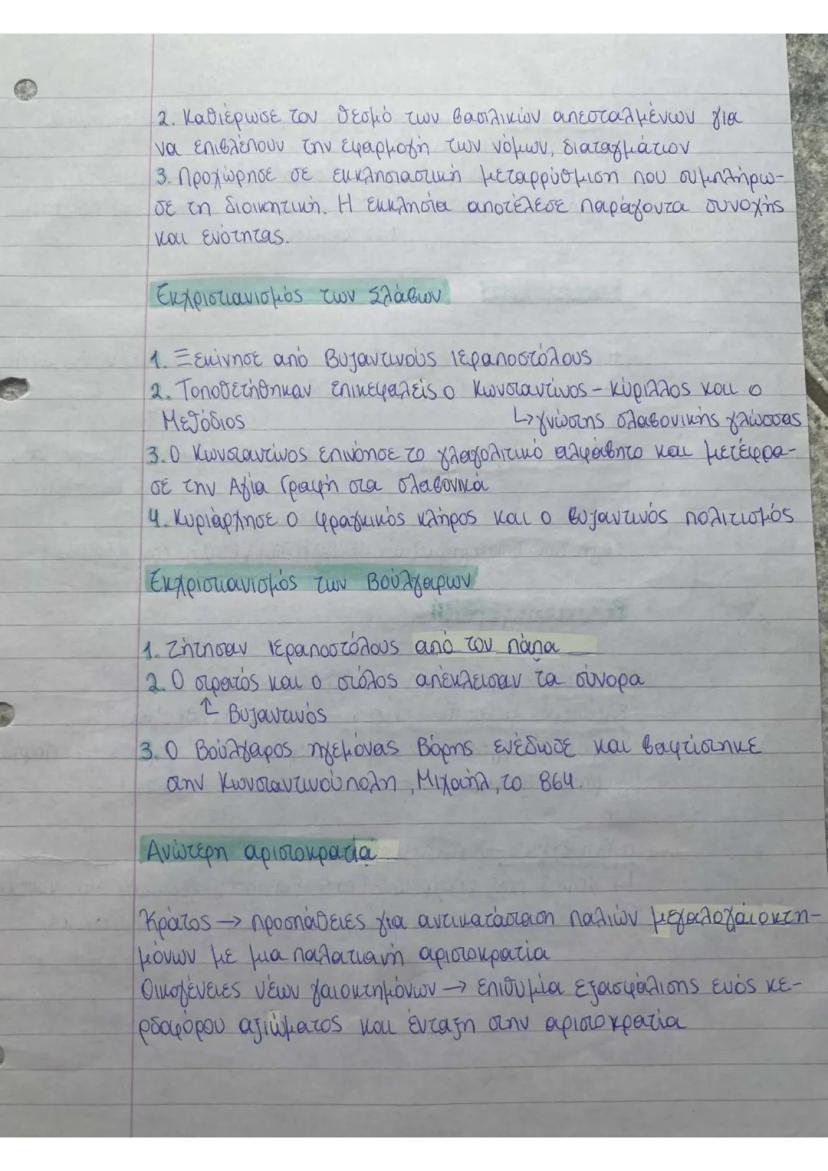 2. Καθιέρωσε τον θεσμό των βασιλικών απεσταλμένων για
να επιβλέπουν την εφαρμογή των νόμων, διαταγμάτων
3. Προχώρησε σε εκκλησιαστική μεταρρύθμιση που συμπλήρω-
σε τη διοικητική. Η εκκλησία αποτέλεσε παράγοντα συνοχής
και ενότητας.
Εκχριστιανισμός των Σλάβων
1. Ξεκίνησε από Βυζαντινούς Ιεραποστόλους
2. Τοποθετήθηκαν επικεφαλείς ο Κωνσταντίνος - Κύριλλος και ο
Μεθόδιος ↳γνώστης σλαβονικής γλώσσας
3. Ο Κωνσταντίνος επινόησε το γλαγολιτικό αλφάβητο και μετέφρα-
σε την Αγία Γραφή στα σλαβονικά
4. Κυριάρχησε ο φραγκικός κλήρος και ο βυζαντινός πολιτισμός
Εκχριστιανισμός των Βούλγαρων
1. Ζήτησαν Ιεραποστόλους από τον πάπα
2. Ο στρατός και ο στόλος απέκλεισαν τα σύνορα
↳ Βυζαντινός
3. Ο Βούλγαρος ηγεμόνας Βόρης ενέδωσε και βαφτίστηκε
στην Κωνσταντινούπολη, Μιχαήλ, το 864.
Ανώτερη αριστοκρατία
Κράτος → προσπάθειες για αντικατάσταση παλιών μεγαλογαιοκτη-
μόνων με μια παλατιανή αριστοκρατία
Οικογένειες νέων γαιοκτημόνων → επιθυμία εξασφάλισης ενός κε-
ρδοφόρου αξιώματος και ένταξη στην αριστοκρατία